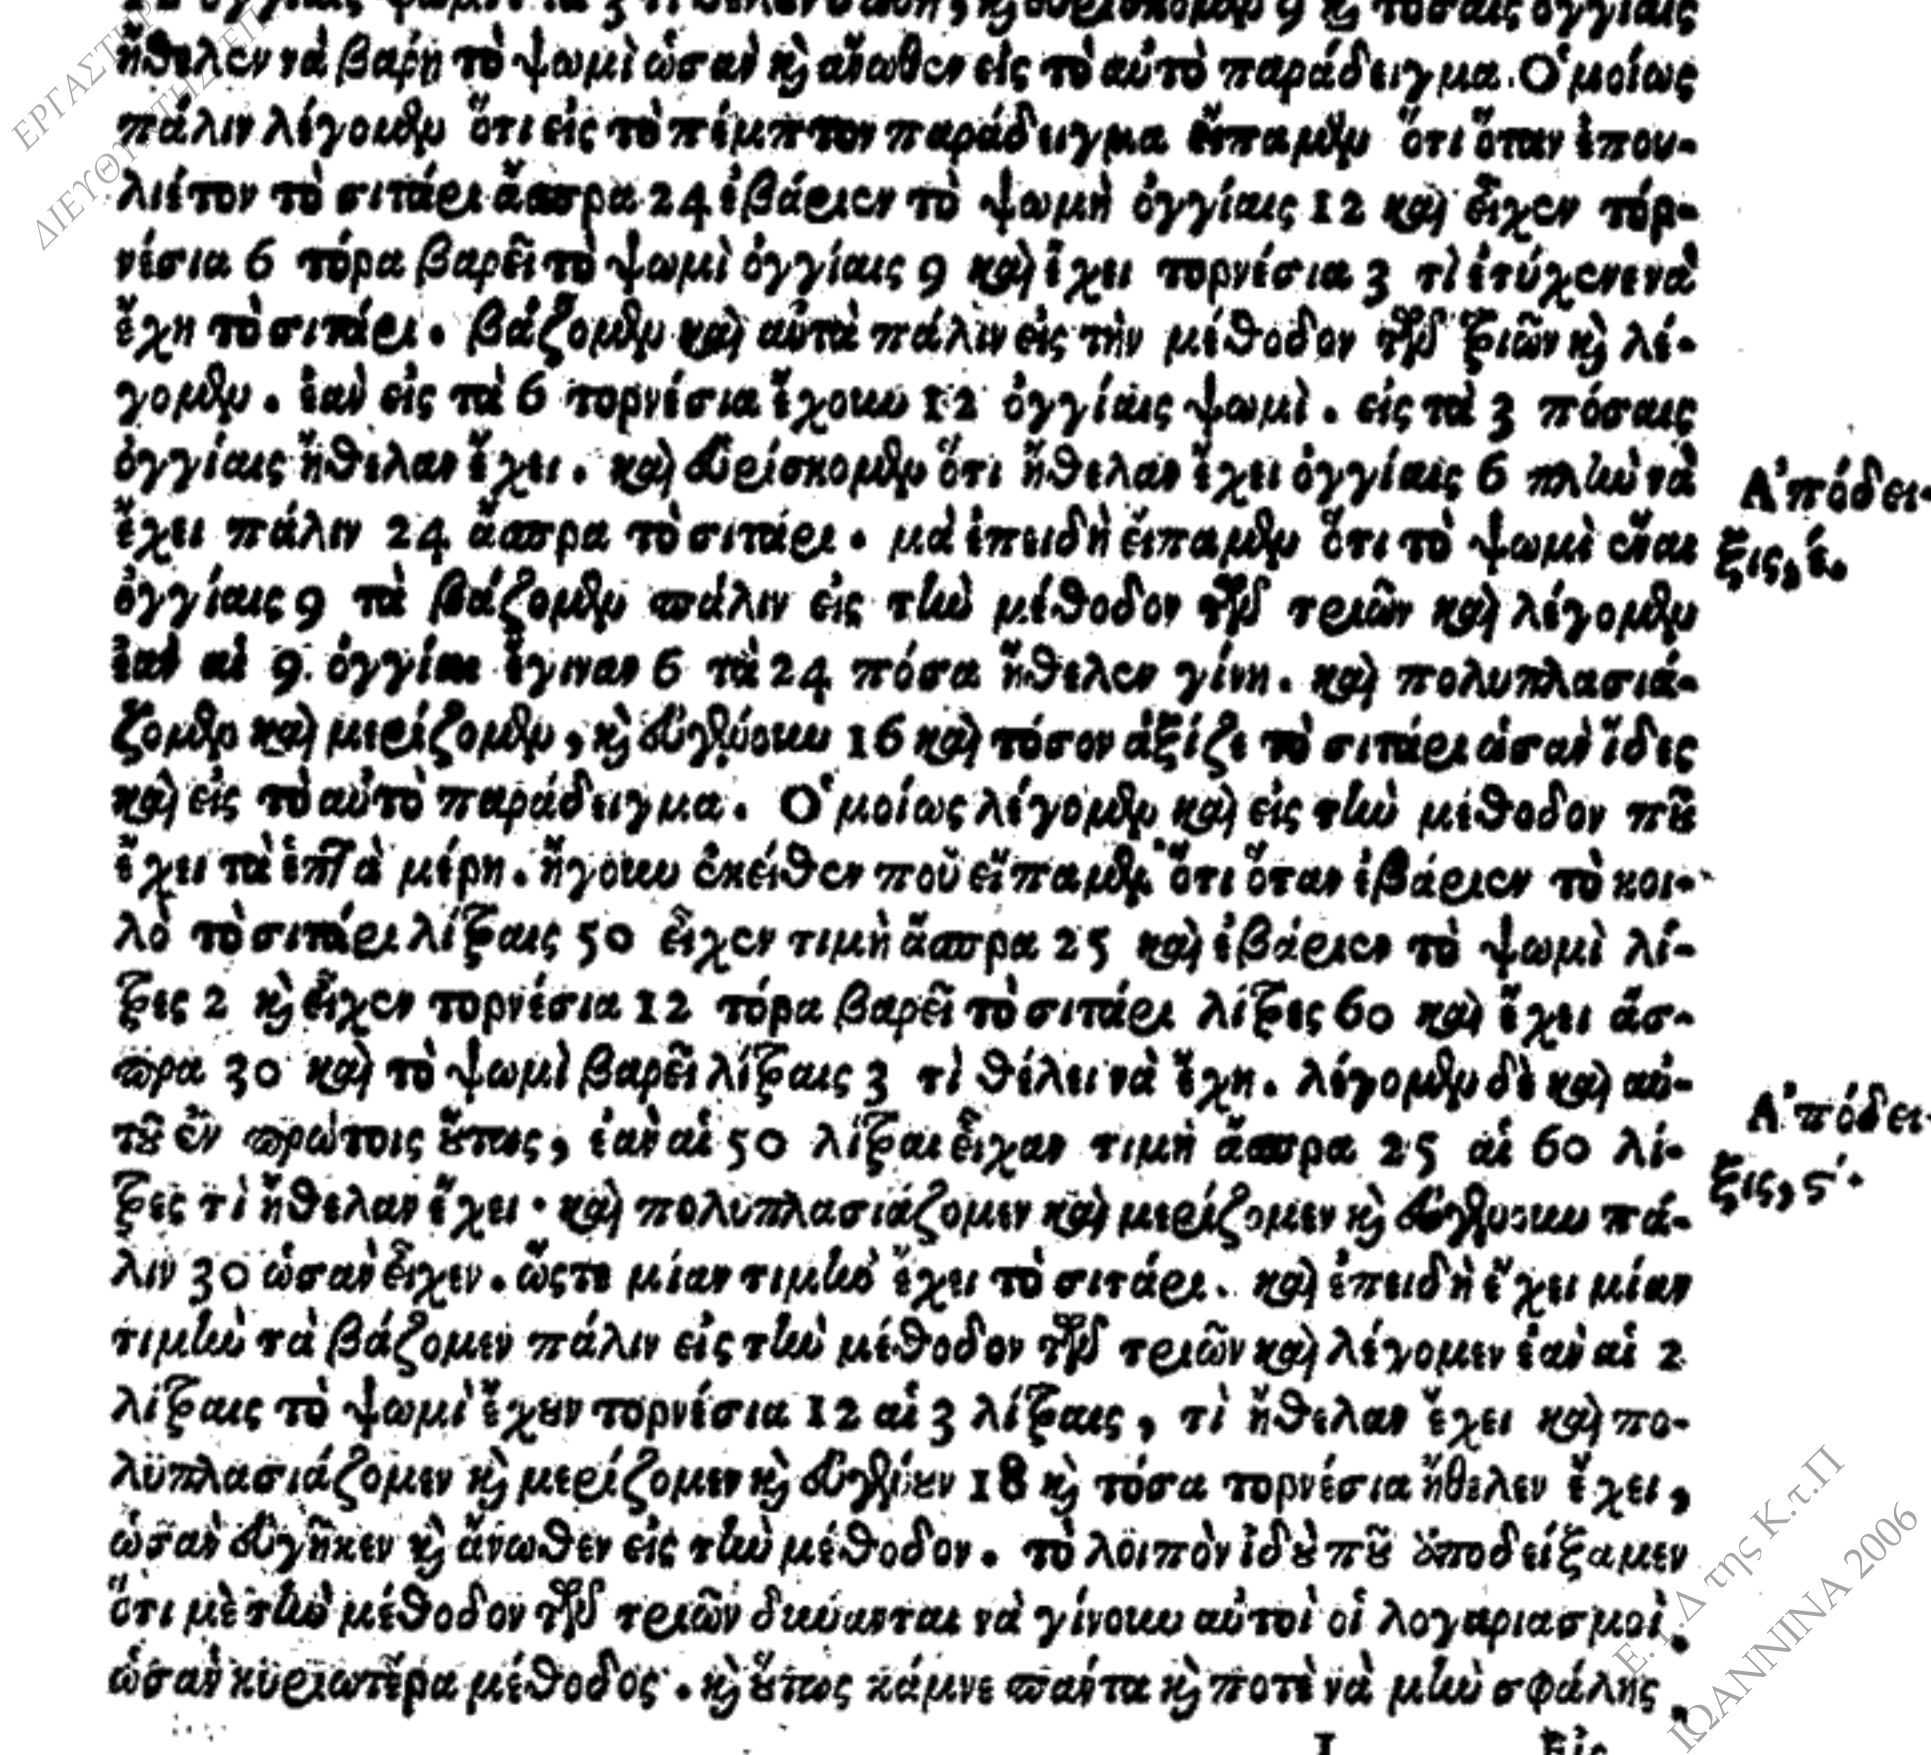 ἤθελεν νὰ βαρῇ τὸ ψωμὶ ὡσὰν κỳ ἄνωθεν εἰς τὸ αὐτὸ παράδειγμα. Ὁμοίως
πάλιν λέγομεν ὅτι εἰς τὸ πέμπτον παράδειγμα εἴπαμεν ὅτι ὅταν ἐπου-
λιέτον τὸ σιτάρι ἄσπρα 24 ἐβάριεν τὸ ψωμὴ ὀγγίαις 12 καὶ εἶχεν τόρ-
νέσια 6 τόρα βαρεῖ τὸ ψωμὶ ὀγγίαις 9 καὶ ἔχει τορνέσια 3 τὶ ἐτύχενενὰ
ἔχη τὸ σιτάρι. βάζομεν καὶ αὐτὰ πάλιν εἰς τὴν μέθοδον τῶν τριῶν καὶ λέ-
γομεν. ἐὰν εἰς τὰ 6 τορνέσια ἔχουν 12 ὀγγίαις ψωμὶ. εἰς τὰ 3 πόσαις
ὀγγίαις ἤθελαν ἔχει. καὶ εὑρίσκομεν ὅτι ἤθελαν ἔχει ὀγγίαις 6 πλὴν νὰ
ἔχει πάλιν 24 ἄσπρα τὸ σιτάρι. μὰ ἐπειδὴ εἴπαμεν ὅτι τὸ ψωμὶ εἶναι
ὀγγίαις 9 τὰ βάζομεν πάλιν εἰς τὴν μέθοδον τῶν τριῶν καὶ λέγομεν
ἐὰν αἱ 9. ὀγγίαι ἔγιναν 6 τὰ 24 πόσα ἤθελεν γίνη. καὶ πολυπλασιά-
ζομεν καὶ μερίζομεν, καὶ εὐγαίνουν 16 καὶ τόσον ἀξίζε τὸ σιτάρι ὡσὰν ἴδες
καὶ εἰς τὸ αὐτὸ παράδειγμα. Ὁμοίως λέγομεν καὶ εἰς τὴν μέθοδον ποῦ
ἔχει τὰ ἑπτὰ μέρη. ἤγουν ἐκείθεν ποῦ εἴπαμεν ὅτι ὅταν ἐβάριεν τὸ κοι-
λὸ τὸ σιτάρι λίτραις 50 εἶχεν τιμὴ ἄσπρα 25 καὶ ἐβάριεν τὸ ψωμὶ λί-
τρες 2 καὶ εἶχεν τορνέσια 12 τόρα βαρεῖ τὸ σιτάρι λίτρες 60 καὶ ἔχει ἄσ-
πρα 30 καὶ τὸ ψωμὶ βαρεῖ λίτραις 3 τὶ θέλει νὰ ἔχη. λέγομεν δὲ καὶ αὐ-
τοῦ ἐν πρώτοις οὕτως, ἐὰν αἱ 50 λίτραι εἶχαν τιμὴ ἄσπρα 25 αἱ 60 λί-
τρες τὶ ἤθελαν ἔχει. καὶ πολυπλασιάζομεν καὶ μερίζομεν καὶ εὐγαίνουν πά-
λιν 30 ὡσὰν εἶχεν. ὥστε μίαν τιμὴν ἔχει τὸ σιτάρι. καὶ ἐπειδὴ ἔχει μίαν
τιμὴν τὰ βάζομεν πάλιν εἰς τὴν μέθοδον τῶν τριῶν καὶ λέγομεν ἐὰν αἱ 2
λίτραις τὸ ψωμὶ ἔχουν τορνέσια 12 αἱ 3 λίτραις, τὶ ἤθελαν ἔχει καὶ πο-
λυπλασιάζομεν καὶ μερίζομεν καὶ εὐγαίνουν 18 καὶ τόσα τορνέσια ἤθελεν ἔχει,
ὡσὰν εὐγῆκεν καὶ ἄνωθεν εἰς τὴν μέθοδον. τὸ λοιπὸν ἰδοὺ ποῦ ὑποδείξαμεν
ὅτι μὲ τὴν μέθοδον τῶν τριῶν δύνανται νὰ γίνουν αὐτοὶ οἱ λογαριασμοὶ.
ὡσὰν κυριωτέρα μέθοδος. καὶ οὕτως κάμνε πάντα καὶ ποτὲ νὰ μὴν σφάλης,
I Εἰς
Ἀπόδει-
ξις, έ.
Ἀπόδει-
ξις, ϛ'.
Ε.Τ.Δ της Κ.τ.Π
ΙΩΑΝΝΙΝΑ 2006